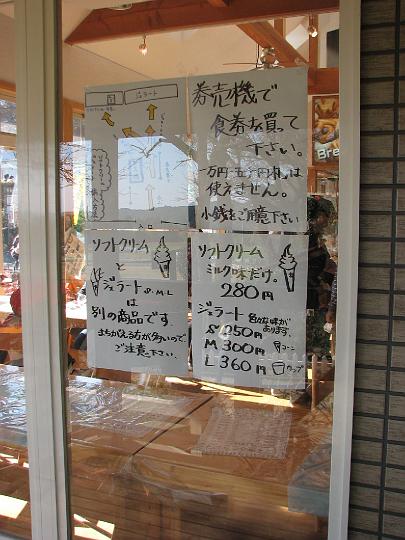 ジェラート
券売機で
食券を買って
下さい。
一万円・五千円札は
使えません。
小銭をご用意下さい
ソフトクリーム
と
ジェラート S・M・L
は
別の商品です。
まちがえる方が多いので
ご注意下さい。
ソフトクリーム
ミルク味だけ。
280円
ジェラート 色々な味が
あります。
S 250円
M 300円 コーン
L 360円 カップ
Bre